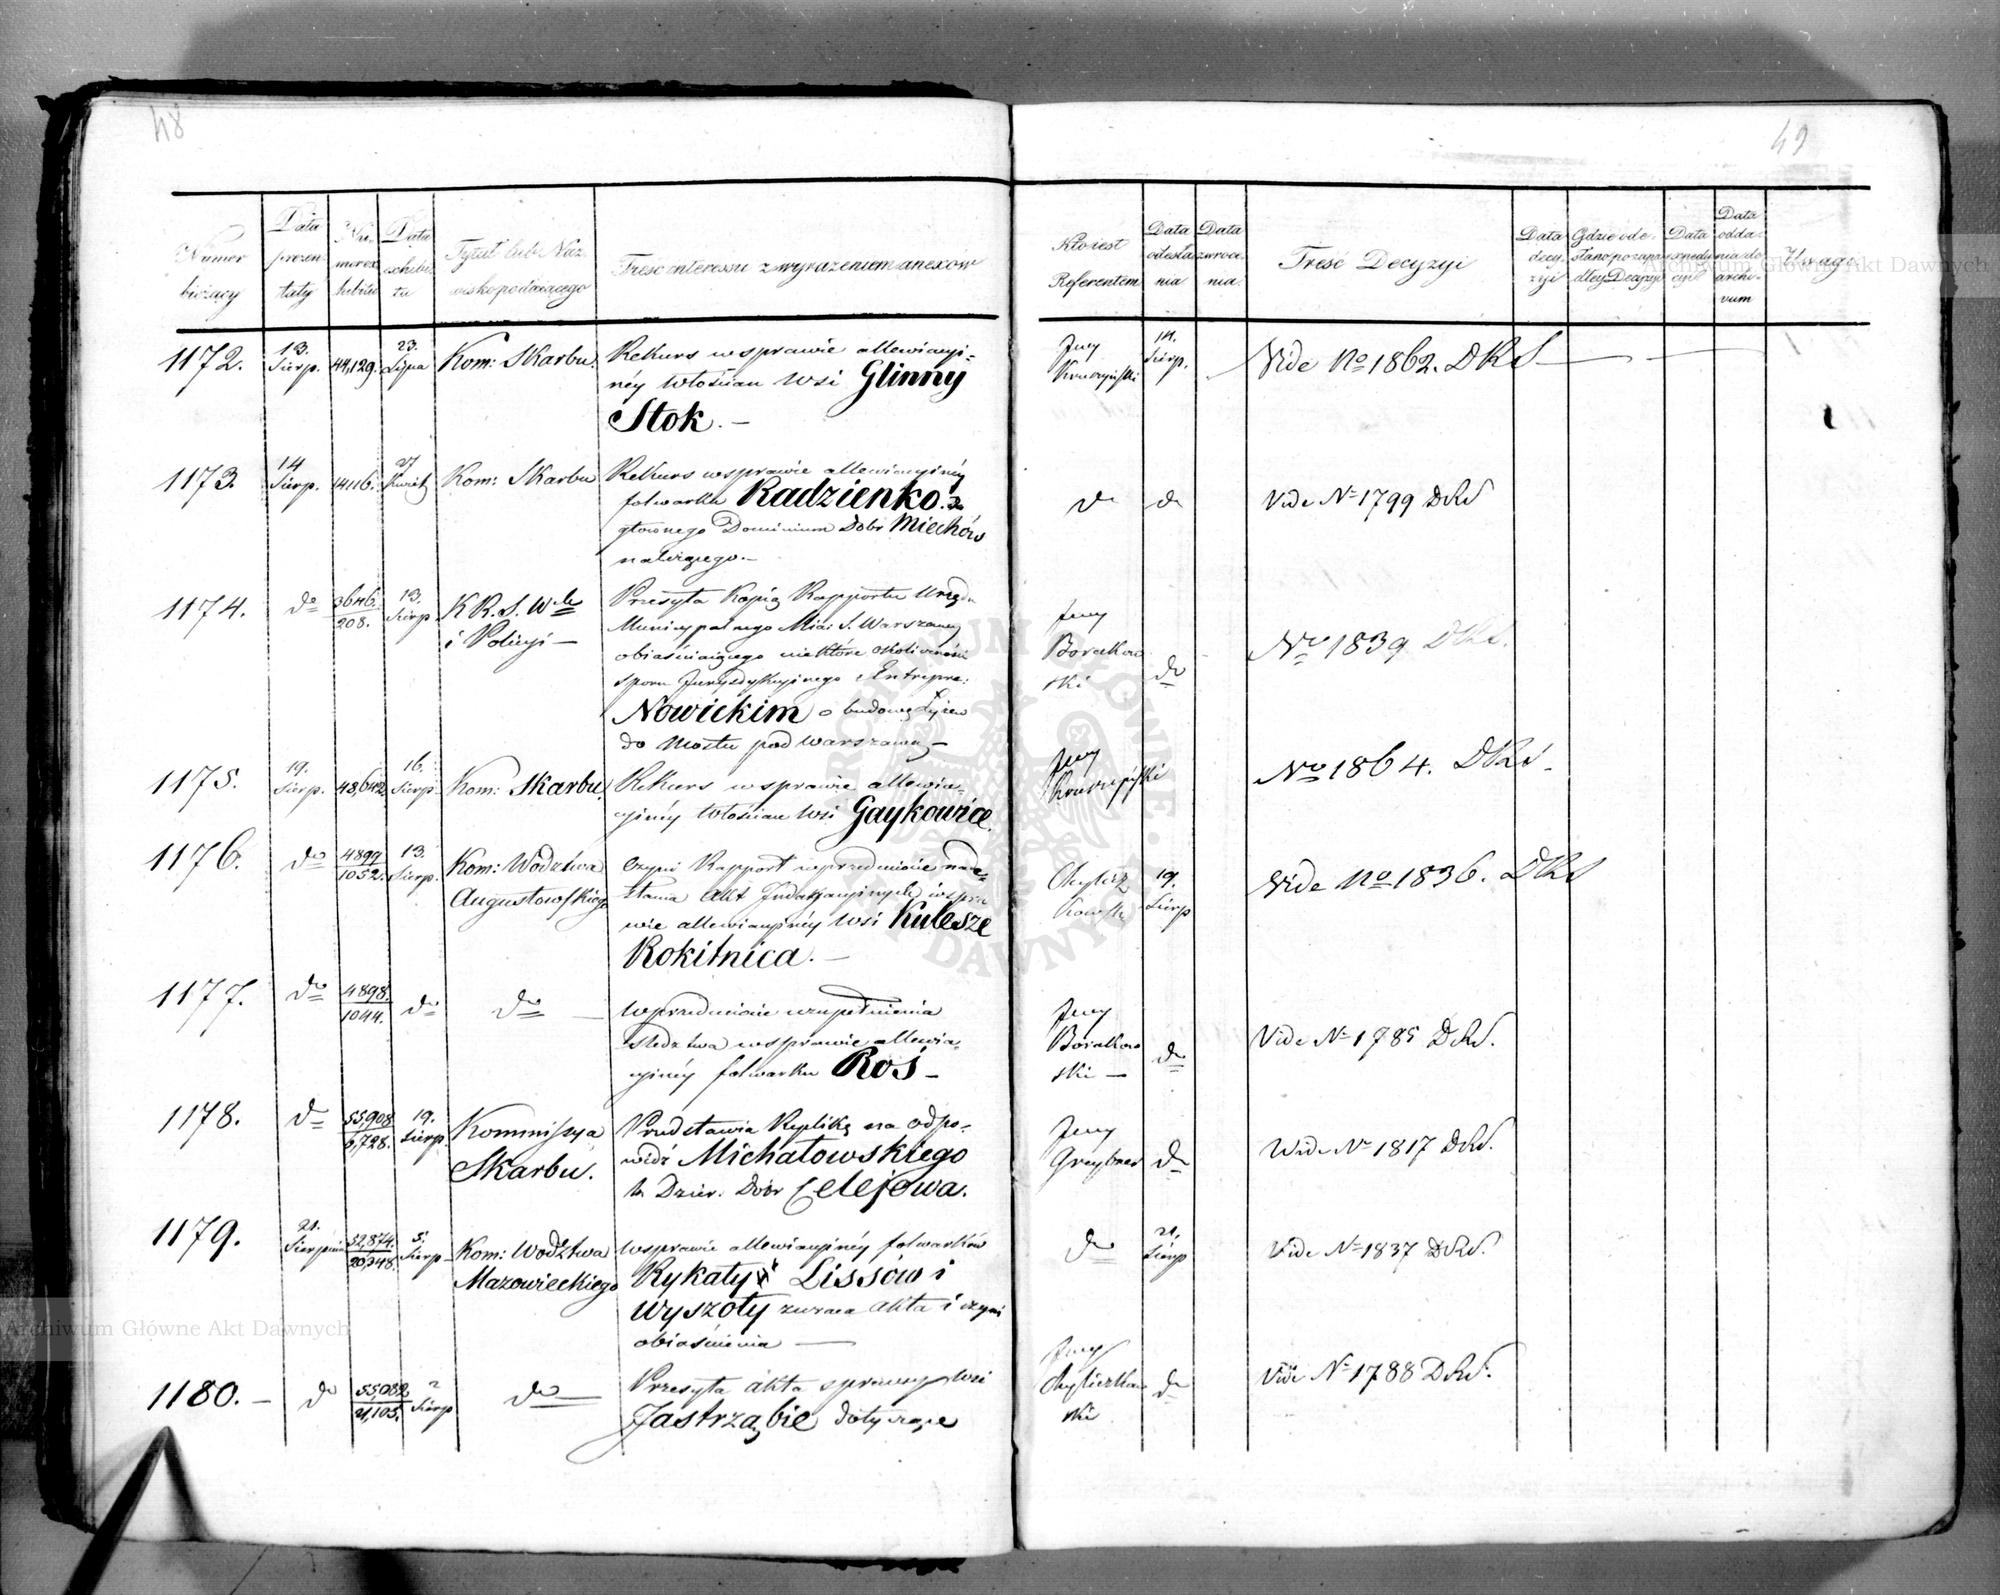 48
49
Numer bieżący
Data prezentaty
Numer exhibitu
Data exhibitu
Tytuł lub Nazwisko podaiącego
Treść interessu z wyrażeniem anexów
Kto iest Referentem
Data odesłania
Data zwrócenia
Treść Decyzyi
Data decyzyi
Gdzie odesłano po zapadłey Decyzyi
Data expedycyi
Data oddania do archivum
Uwagi
1172. 13. Sierp. 44,129. 23. Lipca Kom: Skarbu. Rekurs w sprawie allewiacyi-
néy Włościan Wsi Glinny
Stok. —
Jny 14. Sierp. Vide No 1862. DRS —
1173. 14 Sierp. 14116. 27 Kom: Skarbu Rekurs w sprawie allewiacyinéy
folwarku Radzienko. do
głownego Dominium Dobr Miechów
należącego. —
do do Vide No 1799 DRS
1174. do 3646./208. 13. Sierp. K R. S. W
i Policyi —
Przesyła Kopią Rapportu Urzędu
Municypalnego Mia: S. Warszawy
obiaśniaiącego niektóre okoliczności
sporu Jurysdykcyjnego z Entrepre:
Nowickim o budowę Łyżew
do Mostu pod Warszawą —
Jny
Borakow
ski do No 1839 DRS.
1175. 19. Sierp. 48,642 16. Sierp. Kom: Skarbu. Rekurs w sprawie allewia-
cyinéy Włościan Wsi Gaykowice.
Jny No 1864. DRS.
1176. do 4899/1052. 13. Sierp. Kom: Wodztwa
Augustowskiego
czyni Rapport w przedmiocie nade-
słania Akt Indagacyinych w spra
wie allewiacyinéy Wsi Kulesze
Rokitnica. —
19. Sierp Vide No 1836. DRS
1177. do 4898./1044. do do — w przedmiocie uzupełnienia
śledztwa w sprawie allewia-
cyinéy folwarku Roś —
Jny
Borakow
ski — do Vide No 1785 DRS.
1178. do 55,908/6,728. 19. Sierp. Kommissya
Skarbu.
Przedstawia Replikę na odpo-
wiedź Michałowskiego
b. Dzier. Dóbr Celejowa.
Jny
do Wide No 1817 DRS.
1179. 21. Sierpnia 52,874./20,348. 5. Sierp Kom: Wodztwa
Mazowieckiego
w sprawie allewiacyinéy folwarków
Rykały Lissow i
Wyszoty zwraca Akta i czyni
obiaśnienia —
do 21. Sierp Vide No 1837 DRS.
1180. — do 55082/21,103. 2 Sierp do Przesyła Akta sprawy Wsi
Jastrząbie dotyczące
Jny
ski do Vide No 1788 DRS.
ARCHIWUM GŁÓWNE AKT DAWNYCH
Archiwum Główne Akt Dawnych
Archiwum Główne Akt Dawnych